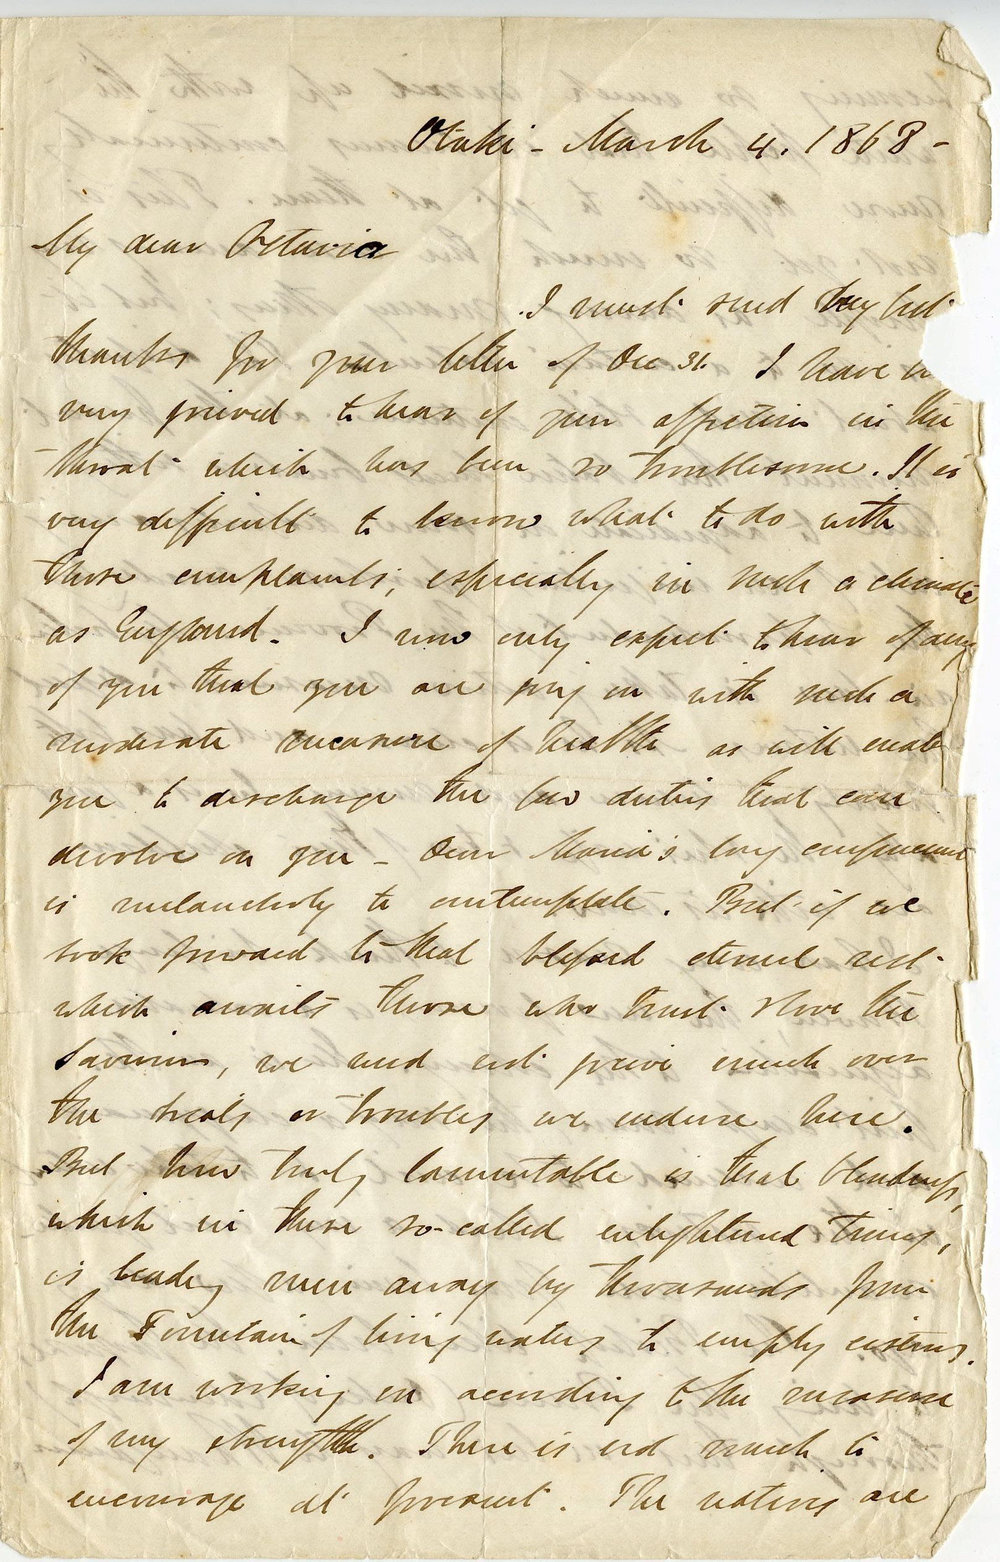 Otaki - March 4. 1868 -
My dear Octavia
I must send my best
thanks for your letter of Dec 31. I have
very grieved to hear of your affection in the
throat which has been so troublesome. It is
very difficult to know what to do with
those complaints, especially in such a climate
as England. I now only expect to hear of any
of you that you are going on with such a
moderate measure of health as will enable
you to discharge the few duties that can
devolve on you - Dear Maria's long confinement
is melancholy to contemplate. But if we
look forward to that blessed eternal rest
which awaits those who trust & love the
Saviour, we need not grieve much over
the trials or troubles we endure here.
But how truly lamentable is that blindness,
which in these so-called enlightened times,
is leading men away by thousands from
the Fountain of living waters to empty cisterns.
I am working on according to the measure
of my strength. There is not much to
encourage at present. The natives are